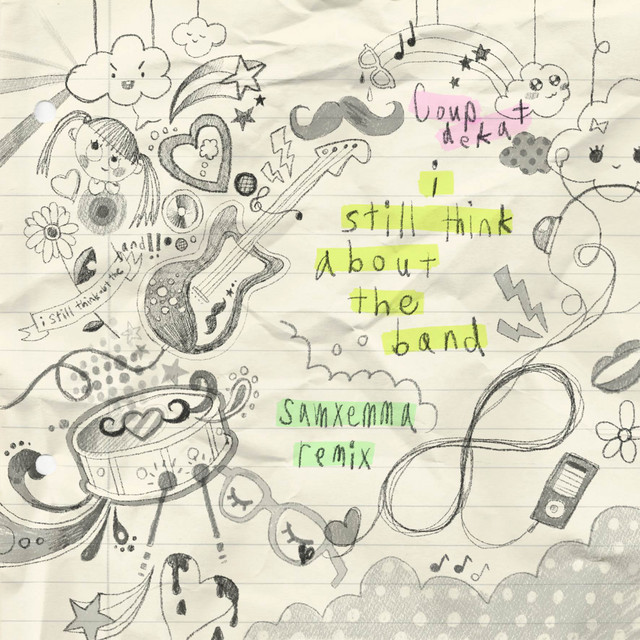 Coup
deka+
i
still think
about
the
band
band!!
i still think abt the
samxemma
remix